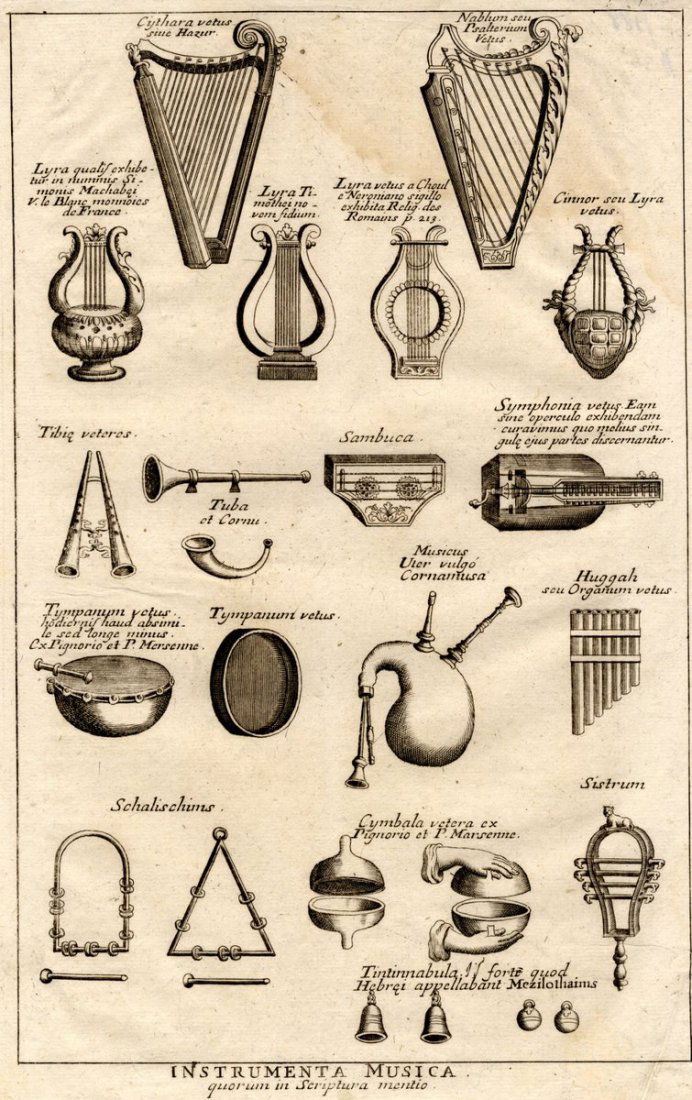 Cythara vetus
sive Hazur.
Nablum seu
Psalterium
Vetus.
Lyra qualis exhibe-
tur in nummis Si-
monis Machabei
V. le Blanc monnoies
de France.
Lyra Ti-
mothei no-
vem fidium.
Lyra vetus a Choul
e Neroniano sigillo
exhibita Relig. des
Romains p. 213.
Cinnor seu Lyra
vetus.
Tibię veteres.
Tuba
et Cornu.
Sambuca.
Symphonia vetus Eam
sine operculo exhibendam
curavimus quo melius sin-
gulę ejus partes discernantur.
Tympanum vetus.
hodiernis haud absimi-
le sed longe minus.
Ex Pignorio et P. Mersenne.
Tympanum vetus.
Musicus
Uter vulgó
Cornamusa
Huggah
seu Organum vetus.
Schalischims.
Cymbala vetera ex
Pignorio et P. Marsenne.
Sistrum
Tintinnabula, forte quod
Hebręi appellabant Mezilothaims
INSTRUMENTA MUSICA.
quorum in Scriptura mentio.